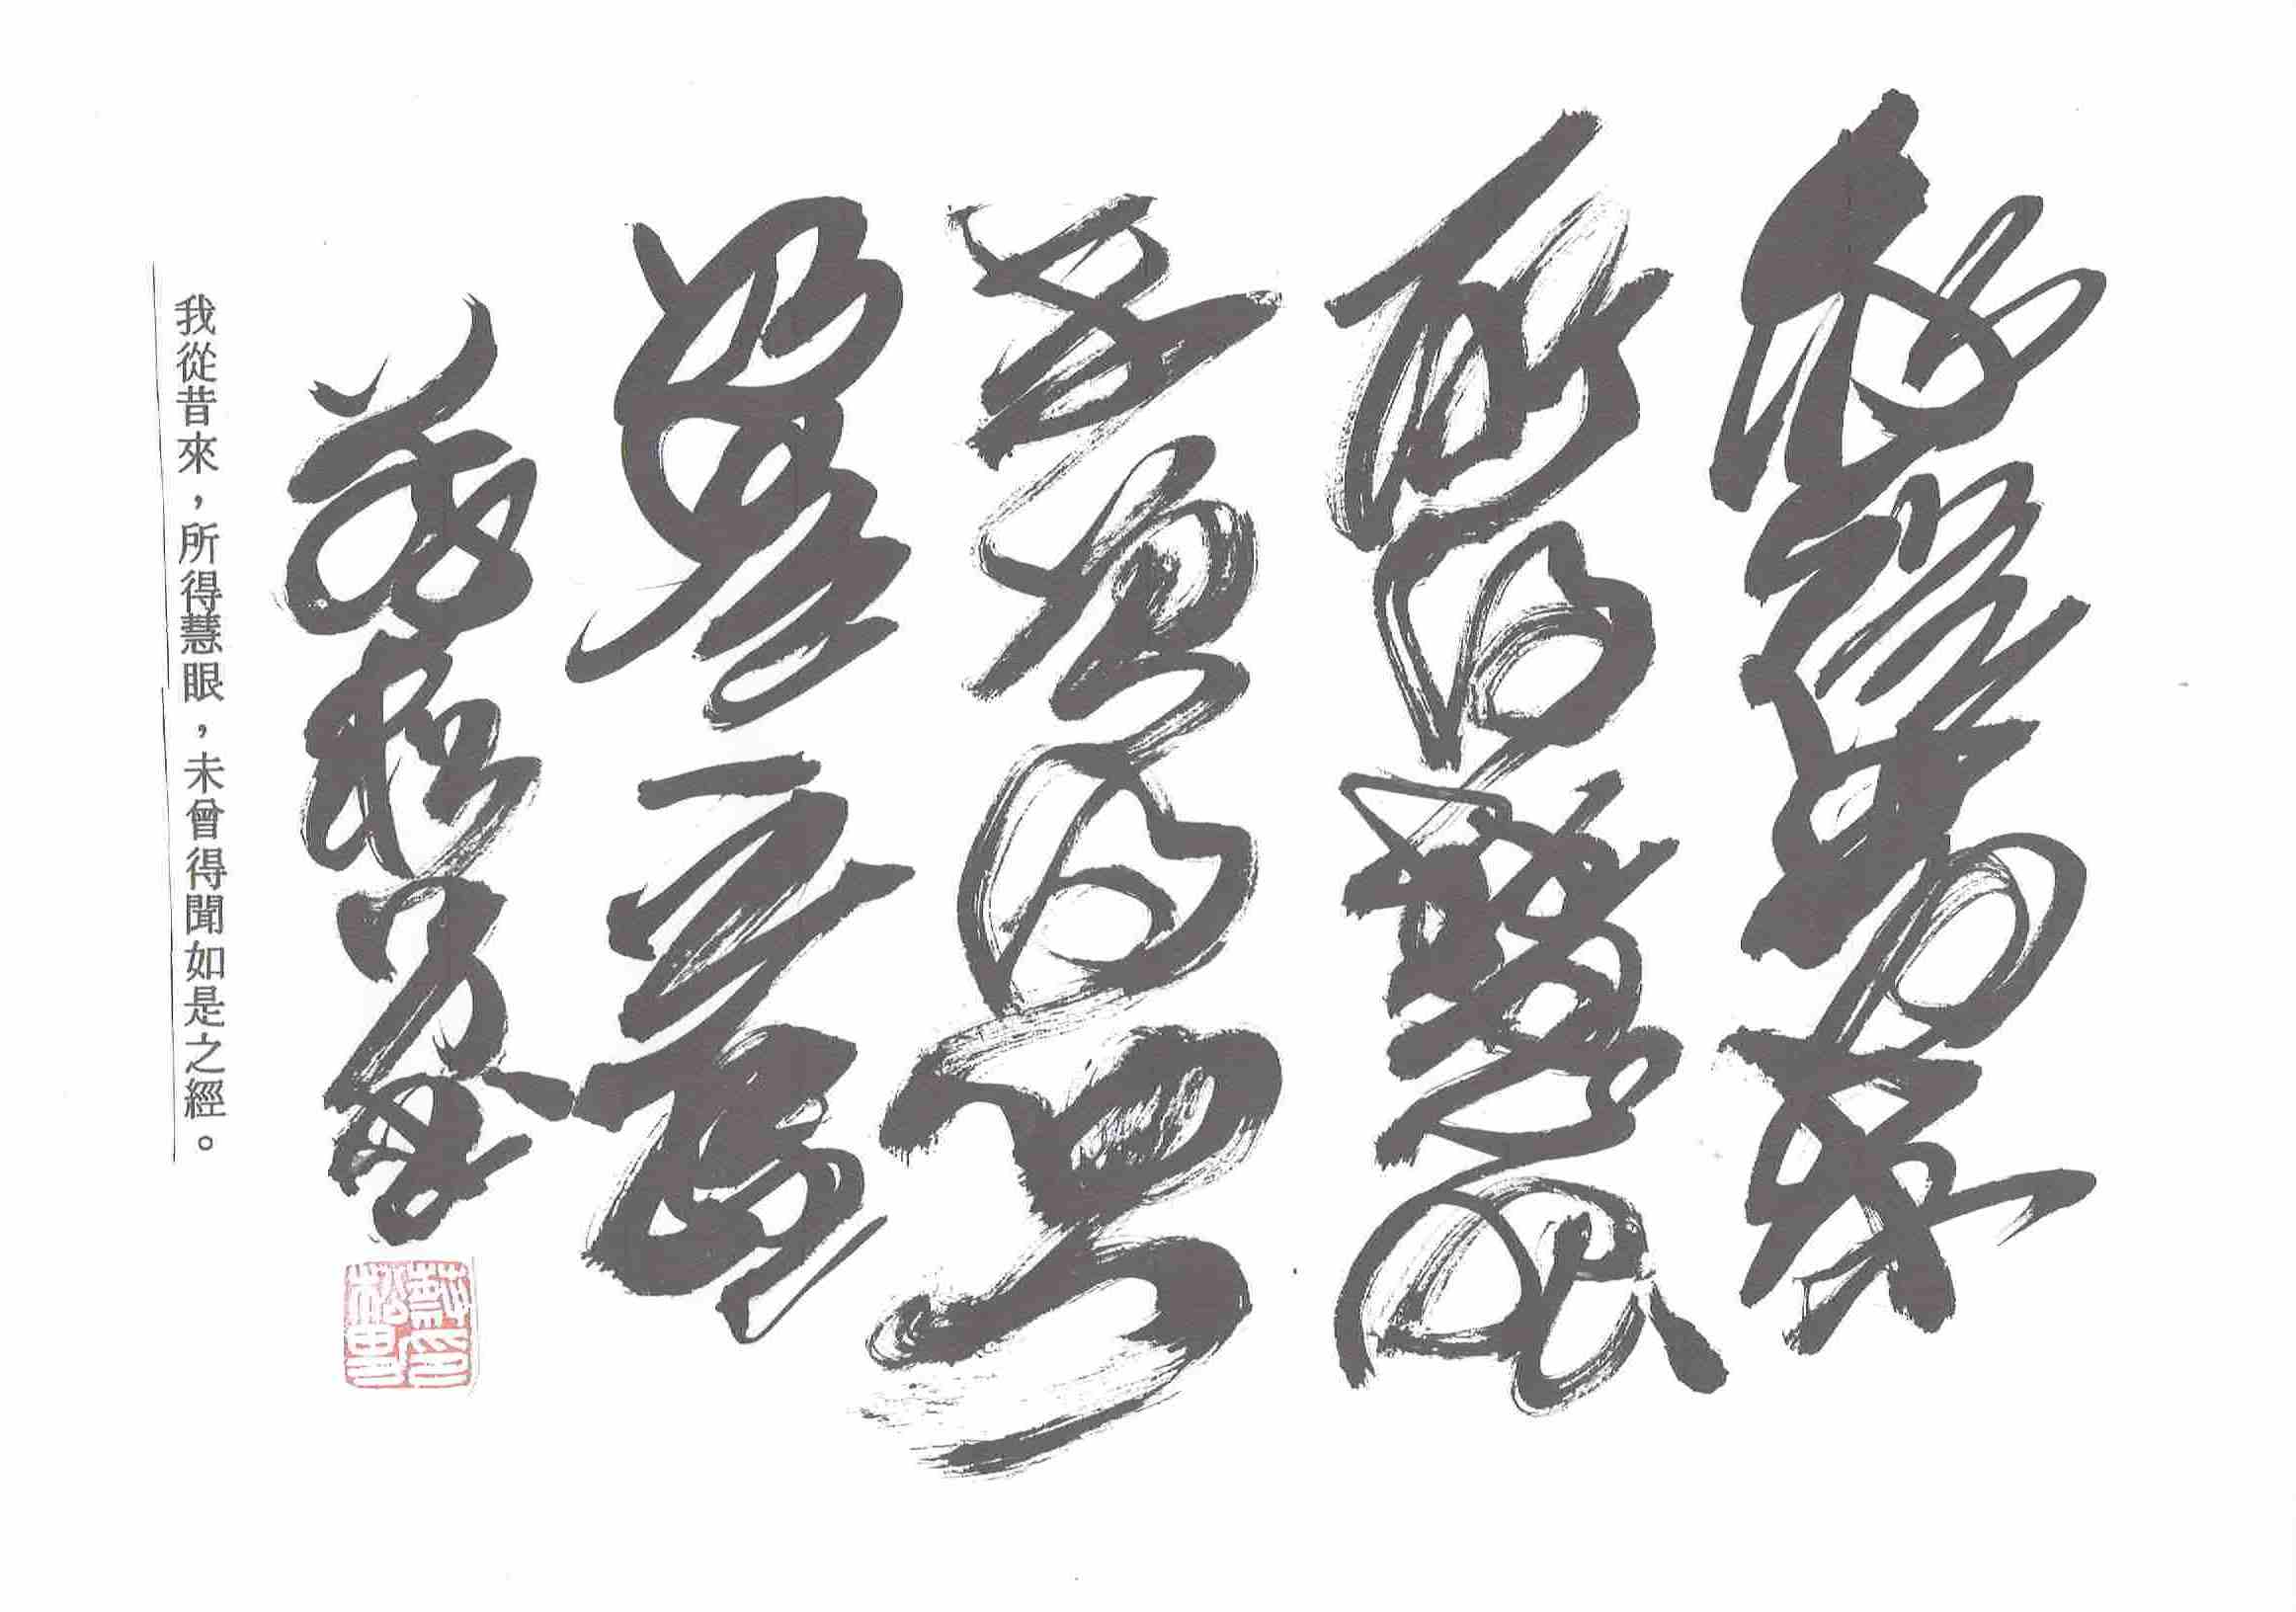 我從昔來
所得慧眼
未曾得聞
如是之經
我從昔來，所得慧眼，未曾得聞如是之經。